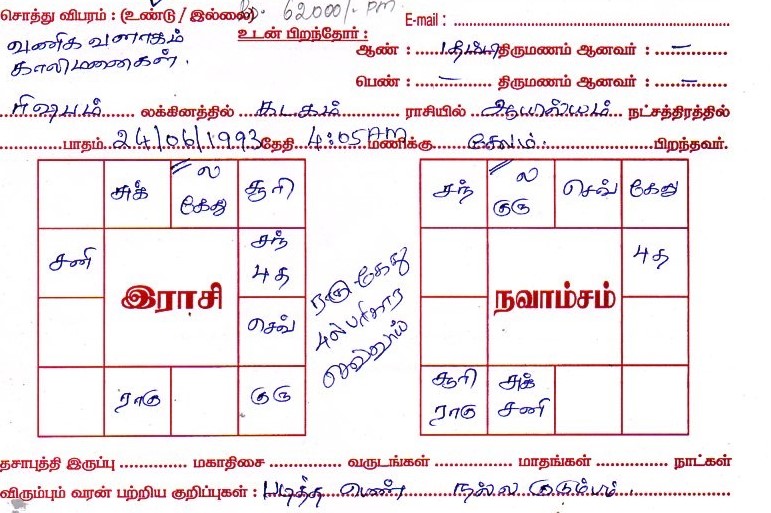 சொத்து விபரம் : (உண்டு / இல்லை) Rs. 62000/- pm E-mail :
வணிக வளாகம் உடன் பிறந்தோர் : ஆண் : திருமணம் ஆனவர் : –
காலிமனைகள். பெண் : – திருமணம் ஆனவர் : –
ரிஷபம் லக்கினத்தில் கடகம் ராசியில் ஆயில்யம் நட்சத்திரத்தில்
பாதம் 24/06/1993 தேதி 4:05 AM மணிக்கு சேலம். பிறந்தவர்.
சுக் ல கேது சூரி
சனி சந் 4த
இராசி
செவ்
ராகு குரு
ராகு கேது
4ல் பரிகார
செவ்வாய்
சந் ல குரு செவ் கேது
4த
நவாம்சம்
சூரி ராகு சுக் சனி
தசாபுத்தி இருப்பு மகாதிசை வருடங்கள் மாதங்கள் நாட்கள்
விரும்பும் வரன் பற்றிய குறிப்புகள் : படித்த பெண் நல்ல குடும்பம்.